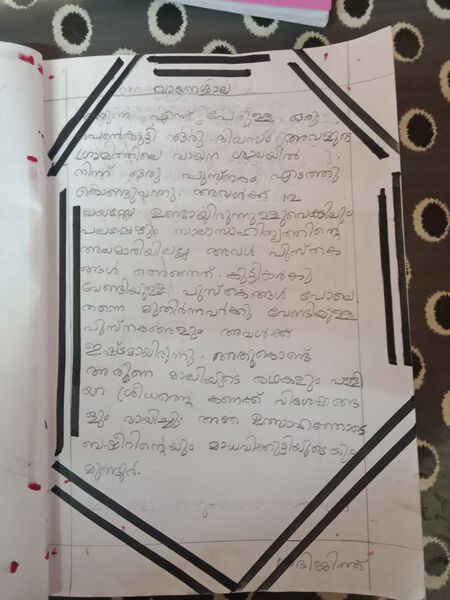 വായനശാല
അരുണ എന്ന് പേരുള്ള ഒരു
പെൺകുട്ടി ഒരു ദിവസം അവളുടെ
ഗ്രാമത്തിലെ വായന ശാലയിൽ
നിന്ന് ഒരു പുസ്തകം എടുത്തു
കൊണ്ടുവന്നു. അവൾക്ക് 12
വയസ്സേ ഉണ്ടായിരുന്നുള്ളുവെങ്കിലും
പലപ്പോഴും ബാലസാഹിത്യത്തിന്റെ
അലമാരിയിലല്ല അവൾ പുസ്തക
ങ്ങൾ തെരഞ്ഞത്. കുട്ടികൾക്കു
വേണ്ടിയുള്ള പുസ്തകങ്ങൾ പോലെ
തന്നെ മുതിർന്നവർക്കു വേണ്ടിയുള്ള
പുസ്തകങ്ങളും അവൾക്ക്
ഇഷ്ടമായിരുന്നു. അതുകൊണ്ട്
അരുണ മാലിയുടെ കഥകളും പള്ളി
യറ ശ്രീധരന്റെ കണക്ക് വിശേഷങ്ങ
ളും വായിച്ചു. അതേ ഉത്സാഹത്തോടെ
ബഷീറിന്റെയും മാധവിക്കുട്ടിയുടെയും